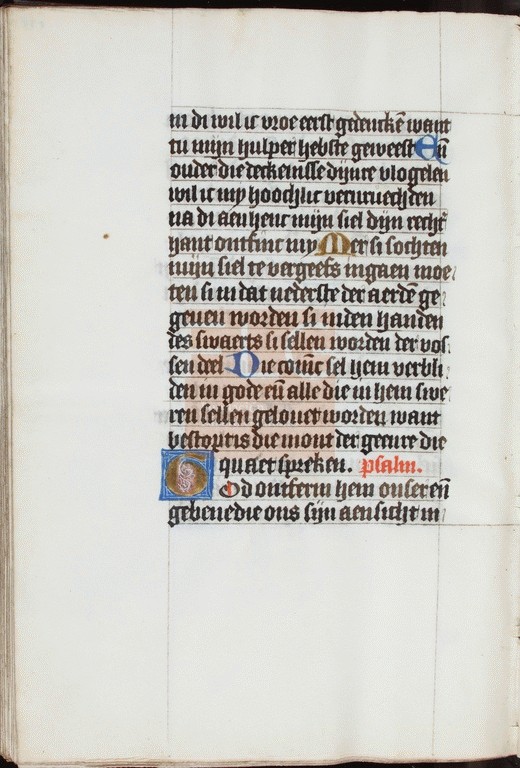 in di wil ic vroe eerst gedencke̅ want
tu mijn hulper hebste geweest En̅
onder die deckenisse dijnre vlogelen
wil ic my hoochlic vervruechden
na di aenhenc mijn siel dijn recht̉
hant ontfinc my Mer si sochten
mijn siel te vergeefs ingaen moe
ten si in dat nederste der aerde̅ ge
geuen worden si inden handen
des swaerts si sellen worden der vos
sen deel Die coninc sel hem verbli
den in gode en̅ alle die in hem swe
ren sellen gelouet worden want
bestopt is die mont der geenre die
quaet spreken. psalm.
God ontferm hem onser en̅
gebenedie ons sijn aensicht in